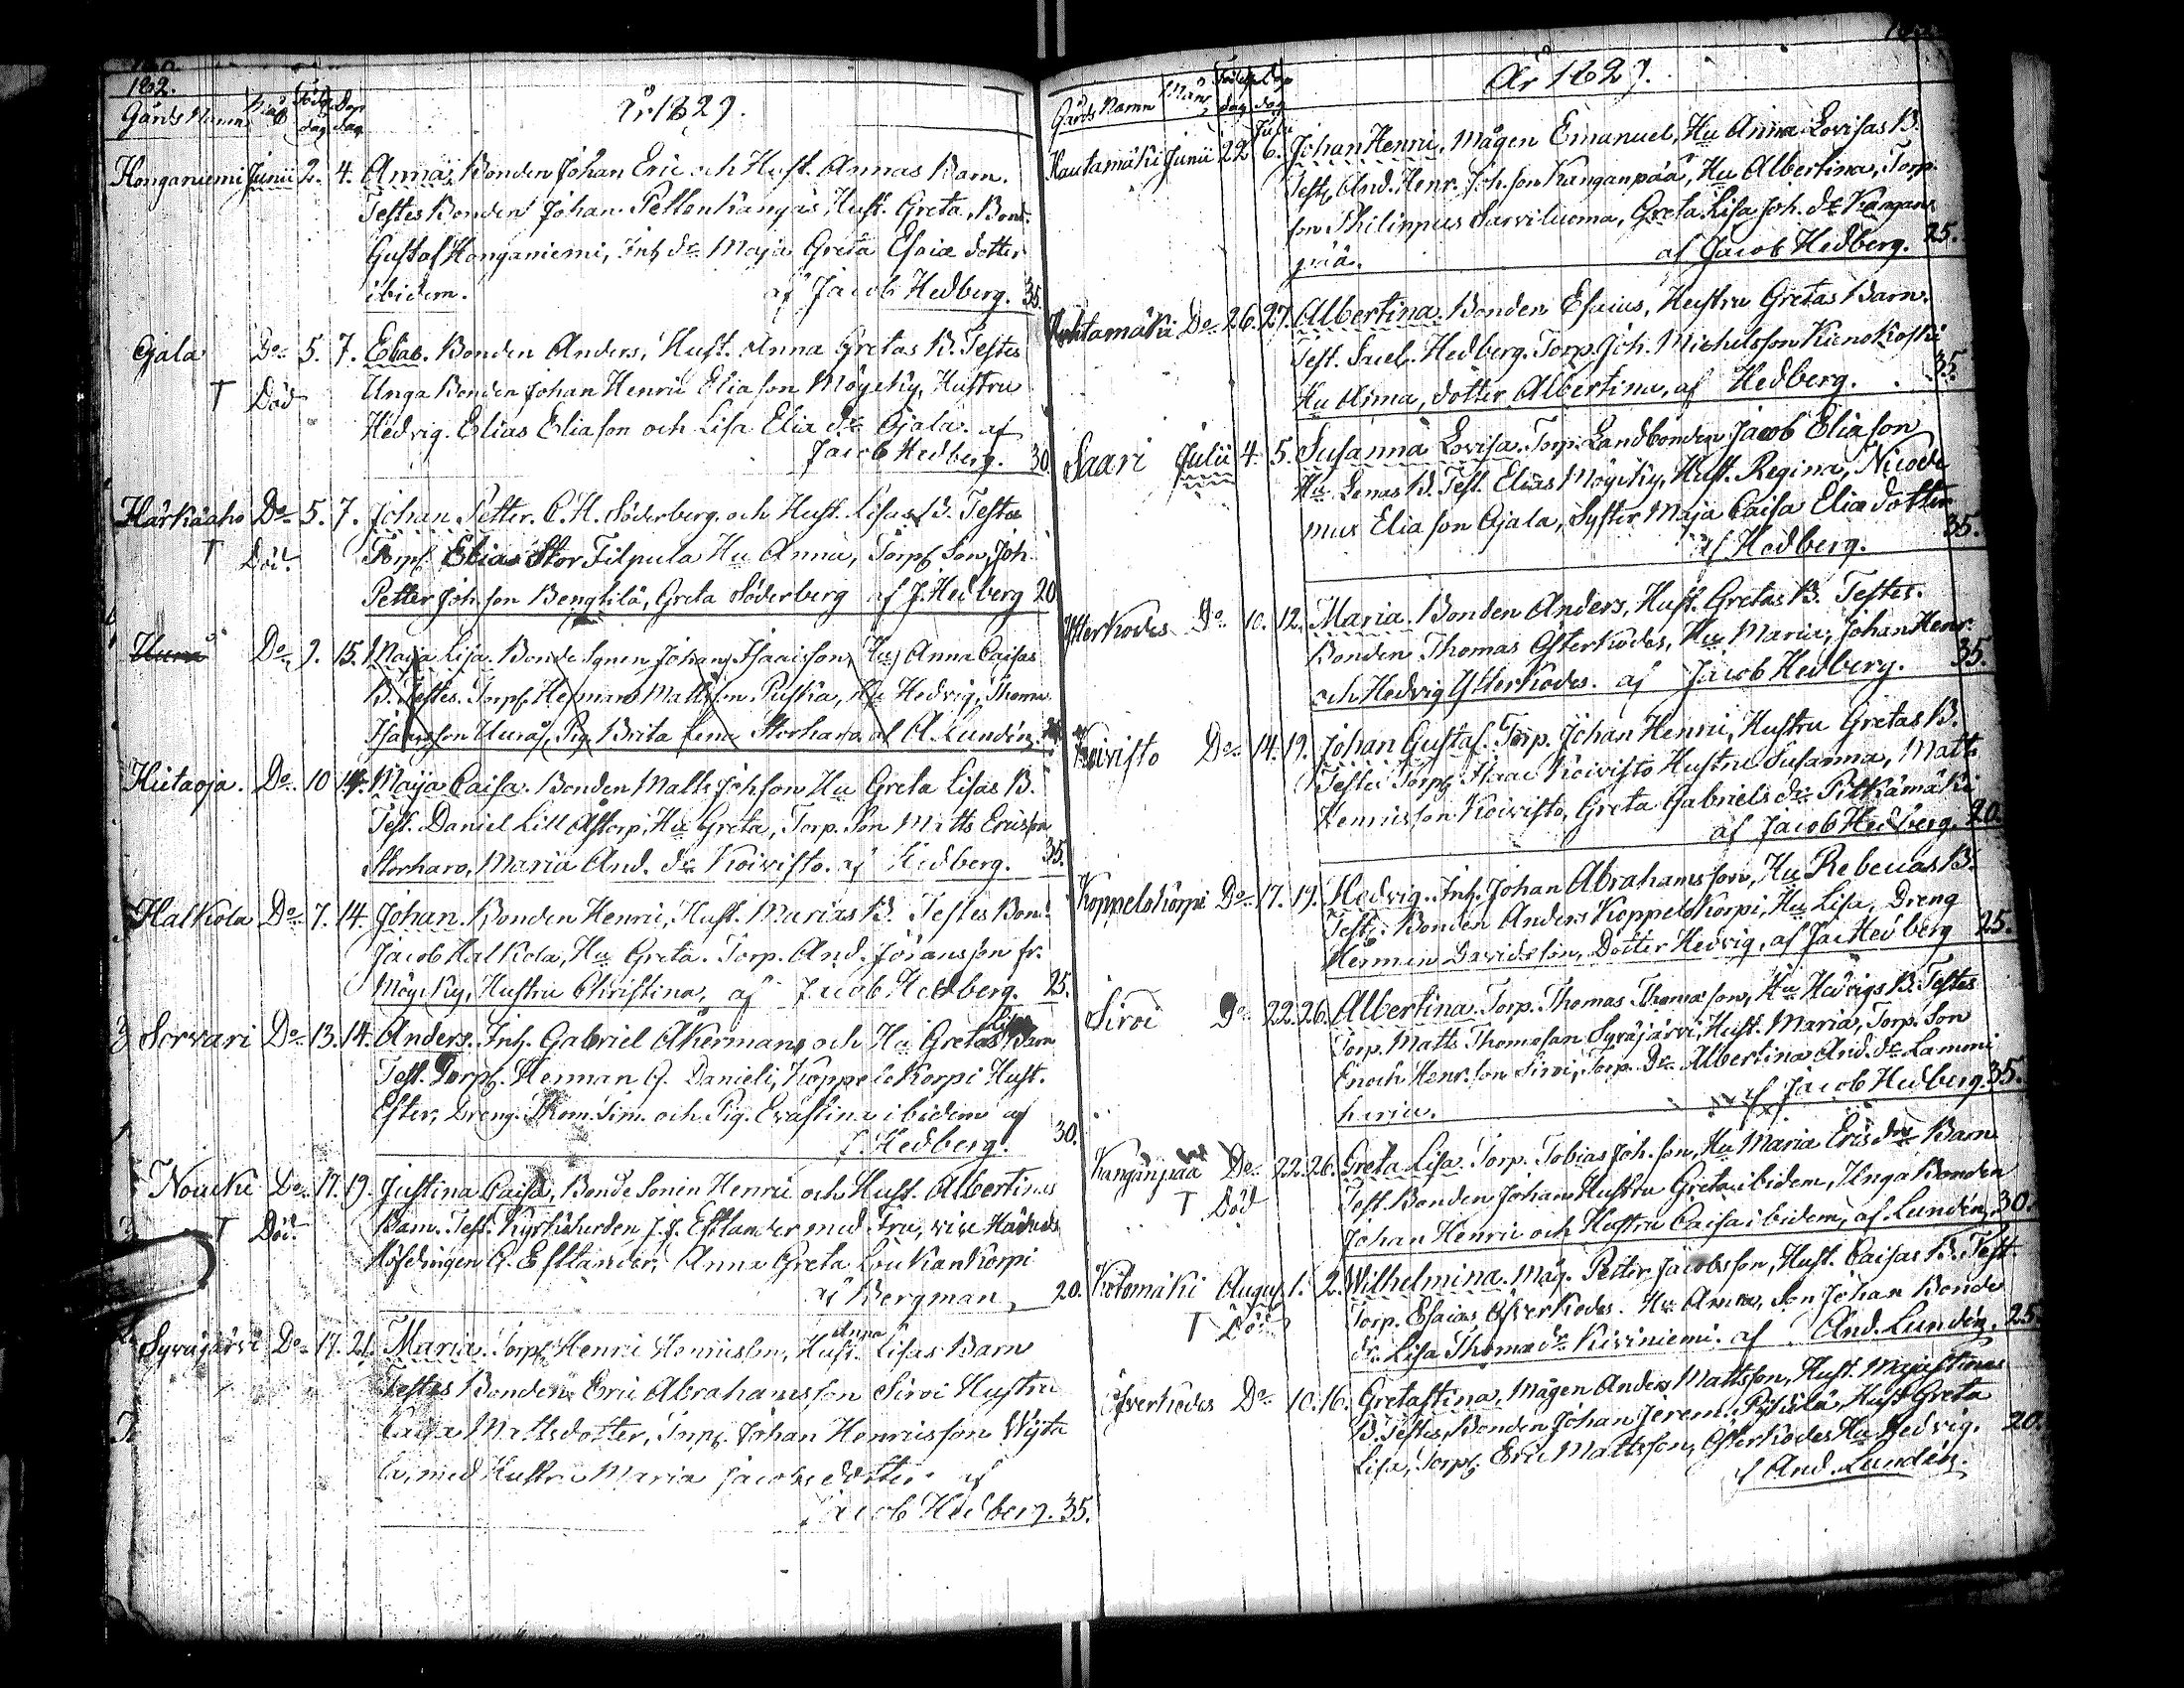 182.
Gårds Namn Mån Föd. dag Döp dag
År 1829.
Honganiemi Junii 2. 4. Anna, Bonden Johan Eric och Hust. Annas Barn.
Testes Bonden Johan Peltonkangas, Hust. Greta, Bond.
Gustaf Honganiemi, Inh. dr Maja Greta Esaiæ dotter
ibidem. af Jacob Hedberg. 35.
Ojala Do 5. 7. Elias. Bonden Anders, Hust. Anna Gretas B. Testes
T Död Unga Bonden Johan Henric Eliasson Möyky, Hustru
Hedvig. Elias Eliason och Lisa Elia dr Ojala. af
Jacob Hedberg. 30.
Härkäaho Do 5. 7. Johan Petter. C. H. Söderberg och Hust. Lisas B. Testes
T Död. Torp. Elias Stor Filpula Hu Anna, Torp. Son Joh.
Petter Joh.son Bengtilä, Greta Söderberg af J. Hedberg 20
Uura Do 9. 15. Maja Lisa. Bonde Synen Johan Isaacsson, Hu Anna Caisas
B. Testes. Torp. Herman Mattsson Puska, Hu Hedvig, Thoma
Isaacsson Uura, Pig. Brita Lena Storharo af A. Lundén.
Hietaoja. Do. 10 14. Maija Caisa. Bonden Matts Johson Hu Greta Lisas B.
Test. Daniel Lill Åstorp, Hu Greta, Torp. Son Matts Ericsson
Storharo, Maria And. dr Koivisto. af Hedberg. 35.
Halkola Do 7. 14. Johan. Bonden Henric, Hust. Marias B. Testes Bon.
Jacob Halkola, Hu Greta. Torp. And. Johansson fr.
Möyky, Hustru Christina, af Jacob Hedberg. 25.
Sorvari Do 13. 14. Anders. Inh. Gabriel Åkerman, och Hu Gretas Lisas Barn
Test. Torp. Herman G. Danieli, Koppelokorpi Hust.
Ester, Dreng. Thom. Sim. och Pig. Evastina ibidem af
J. Hedberg. 30.
Noucki Do 17. 19. Justina Caisa, Bonde Sonen Henric och Hust. Albertinas
T Död. Barn. Test. Kyrkoherden J. J. Estlander med Fru, vice Härads
Höfdingen G. Estlander, Anna Greta Loukankorpi
af Bergman, 20.
Syväjärvi Do 17. 21. Maria. Torp. Henric Henricsson, Hust. Anna Lisas Barn
Testes Bonden Eric Abrahamsson Siroi Hustru
Caisa Mattsdotter, Torp. Johan Henricsson Wyta
med Hustru Maria Jacobs dotter af
Jacob Hedberg. 35.
Gårds Namn Mån Född. dag Döp dag
År 1829.
Rautamäki Junii 22 Julii 6. Johan Henric, Mågen Emanuel, Hu Anna Lovisas B.
Test. And. Henr. Joh.son Kanganpää, Hu Albertina, Torp.
son Philippus Sarviluoma, Greta Lisa Joh. dr Kangan
pää. af Jacob Hedberg. 25.
Huhtamäki Do 26. 27. Albertina. Bonden Esaias, Hustru Gretas Barn.
Test. Sacel. Hedberg. Torp. Joh. Michelsson Kienokoski
Hu Anna, dotter Albertina, af Hedberg. 35.
Saari Julii 4. 5. Susanna Lovisa. Torp. Landbonden Jacob Eliason
Hu Lenas B. Test. Elias Möyky, Hust. Regina, Nicode
mus Eliason Ojala, Syster Maja Caisa Eliædotter
af Hedberg. 35.
Ytterkodes Do 10. 12. Maria. Bonden Anders, Hust. Gretas B. Testes.
Bonden Thomas Ofterkodes, Hu Maria, Johan Henr.
och Hedvig Ytterkodes. af Jacob Hedberg. 35.
Koivisto Do 14. 19. Johan Gustaf. Torp. Johan Henric, Hustru Gretas B.
Testes Torp. Isaac Koivisto Hustru Susanna, Matts
Henricsson Koivisto, Greta Gabriels dr Pitkämäki
af Jacob Hedberg. 20.
Koppelokorpi Do 17. 19. Hedvig. Inh. Johan Abrahamsson, Hu Rebeccas B.
Test. Bonden Anders Koppelokorpi, Hu Lisa, Dreng
Herman Davidsson, Dotter Hedvig, af Jac Hedberg 25.
Siroi Do 22. 26. Albertina. Torp. Thomas Thomasson, Hu Hedvigs B. Testes
Torp. Matts Thomasson Syväjärvi, Hust. Maria, Torp. Son
Enoch Henr.son Siroi, Torp. Dr. Albertina And. dr Lammi
harju. af Jacob Hedberg 35.
Kanganpää Do 22. 26. Greta Lisa. Torp. Tobias Joh.son, Hu Maria Erics drs Barn
T Död Test. Bonden Johan Hustru Greta ibidem, Unga Bonden
Johan Henric och Hustru Caisa ibidem, af Lundén. 30.
Kotomäki August. 1. 2. Wilhelmina. Måg. Petter Jacobsson, Hust. Caisas B. Test
T Död Torp. Esaias Öfverkodes. Hu Anna, Son Johan Bonde
dr. Lisa Thomæ dr Kiviniemi. af And. Lundén. 25.
Öfverkodes Do 10. 16. Gretastina, Mågen Anders Mattsson, Hust. Majastinas
B. Testes, Bonden Johan Jerem. Pyhälä, Hust Greta
Lisa, Torp. Eric Mattsson, Ofterkodes Hu Hedvig. 20.
af And. Lundén.